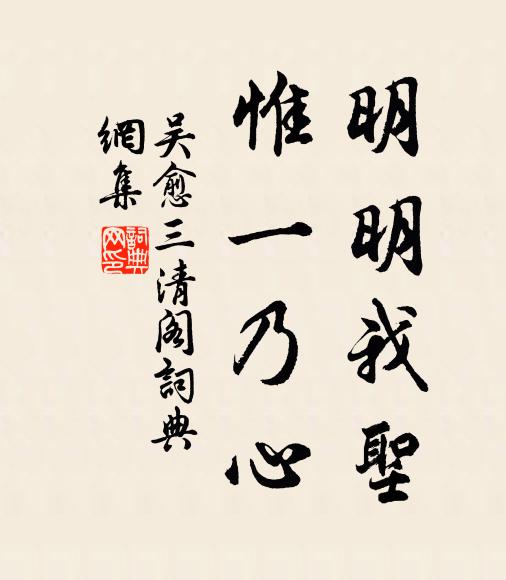 明明我聖
惟一乃心
吴愈三清阁詞典
網集
詞典
网印